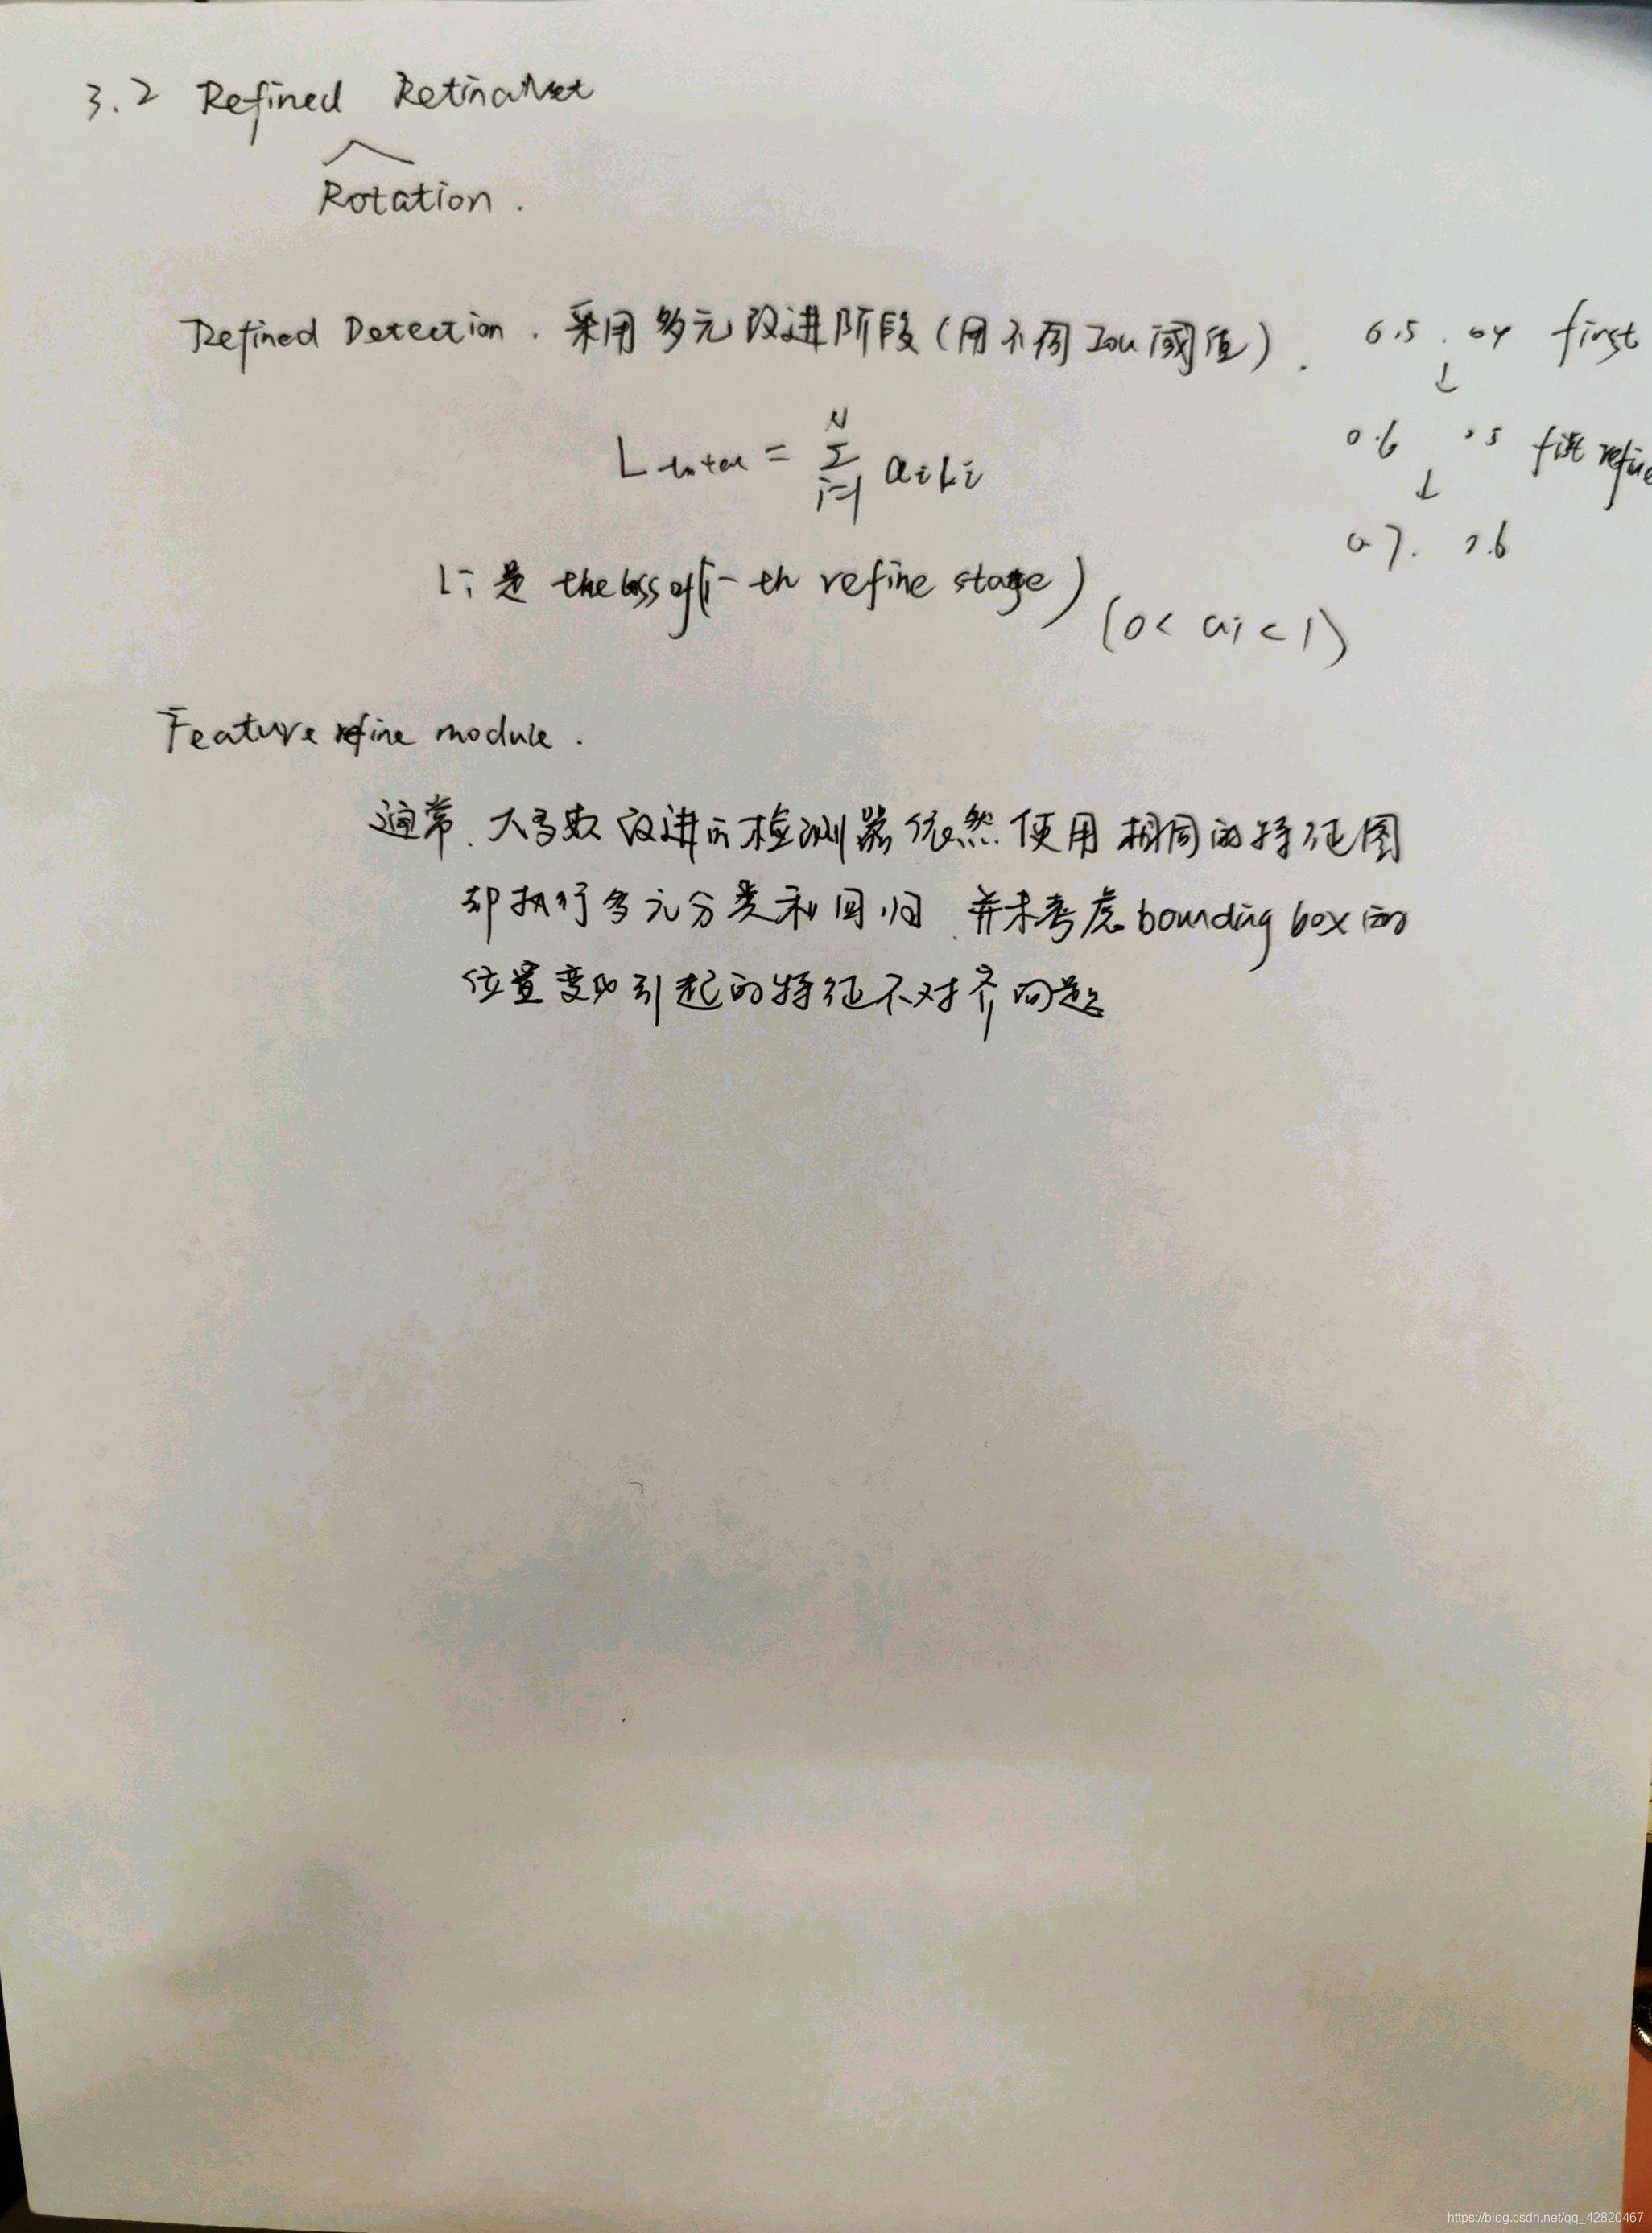 3.2 Refined RetinaNet
Rotation .
Refined Detection . 采用多元改进阶段(用不同Iou阈值) . 0.5 . 04 first
↓
N
L = Σ aiLi 0.6 0.5 first refine
i=1 ↓
0.7. 0.6
Li 是 the loss of (i-th refine stage)
(0< ai < 1)
Feature refine module .
通常. 大多数改进的检测器依然使用相同的特征图
却执行多元分类和回归 . 并未考虑 bounding box 的
位置变动引起的特征不对齐问题
https://blog.csdn.net/qq_42820467